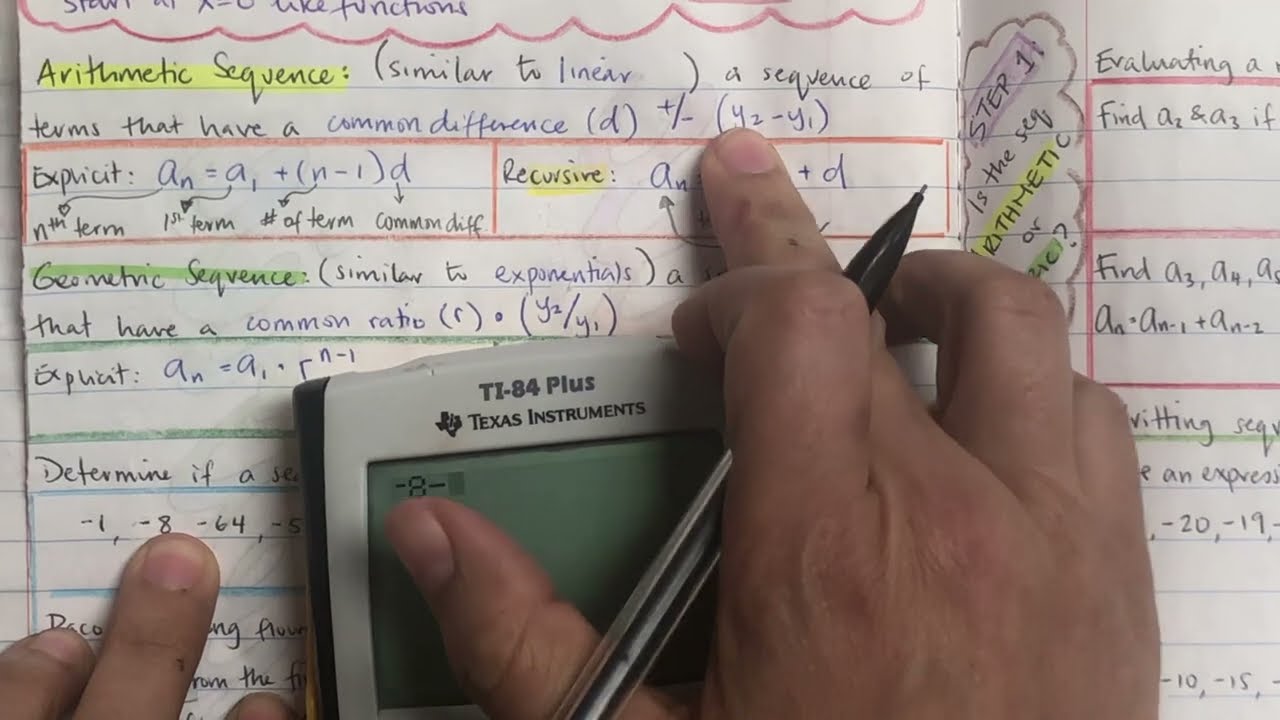 start at x=0 like functions
Arithmetic Sequence: (similar to linear ) a sequence of
terms that have a common difference (d) +/- (y2-y1)
Explicit: an = a1 + (n-1)d
nth term 1st term # of term common diff.
Recursive: an + d
Geometric Sequence: (similar to exponentials) a
that have a common ratio (r) • (y2/y1)
Explicit: an = a1 · r^n-1
Determine if a
-1, -8 -64, -5
from the
TI-84 Plus
TEXAS INSTRUMENTS
-8-
STEP 1:
Is the seq
ARITHMETIC
or
?
Evaluating a
Find a2 & a3 if
Find a3, a4, a5
an = an-1 + an-2
an express
, -20, -19, -
-10, -15, -